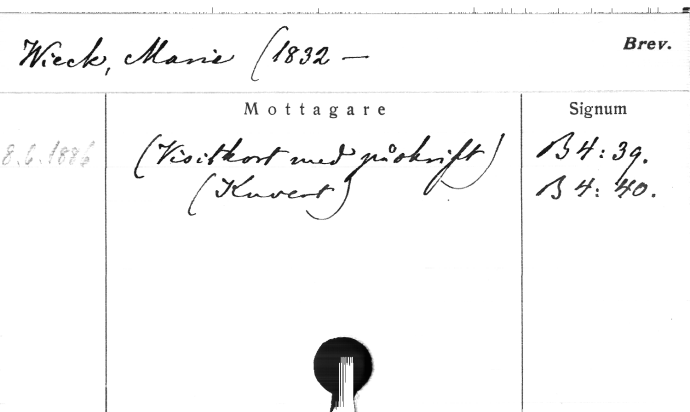 Wieck, Marie (1832 — Brev.
Mottagare Signum
8.6.1886 (Visitkort med påskrift) B 4:39.
(Kuvert) B 4:40.